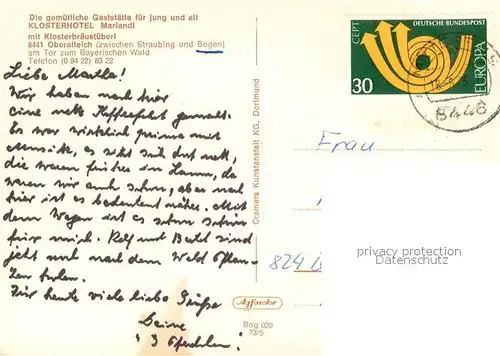 Die gemütliche Gaststätte für jung und alt
KLOSTERHOTEL Mariandl
mit Klosterbräustüberl
8441 Oberalteich (zwischen Straubing und Bogen)
am Tor zum Bayerischen Wald
Telefon (0 94 22) 83 22
Liebe Martha!
Wir haben nach hier
eine nette Kaffeefahrt gemacht.
Es war wirklich prima mit
Musik, es sitzt sich dort nett,
die waren früher in Lamm, da
waren wir auch schon, aber nach
hier ist es bedeutend näher. Mit
dem Wagen ist es schon schön
für mich. Rolf und sind
jetzt noch nach dem Wald
holen.
Für heute viele liebe Grüße
Deine
Cramers Kunstanstalt KG, Dortmund
Agfacolor
Bog 020
73/5
CEPT
DEUTSCHE BUNDESPOST
EUROPA
30
8446
Frau
824
privacy protection
Datenschutz